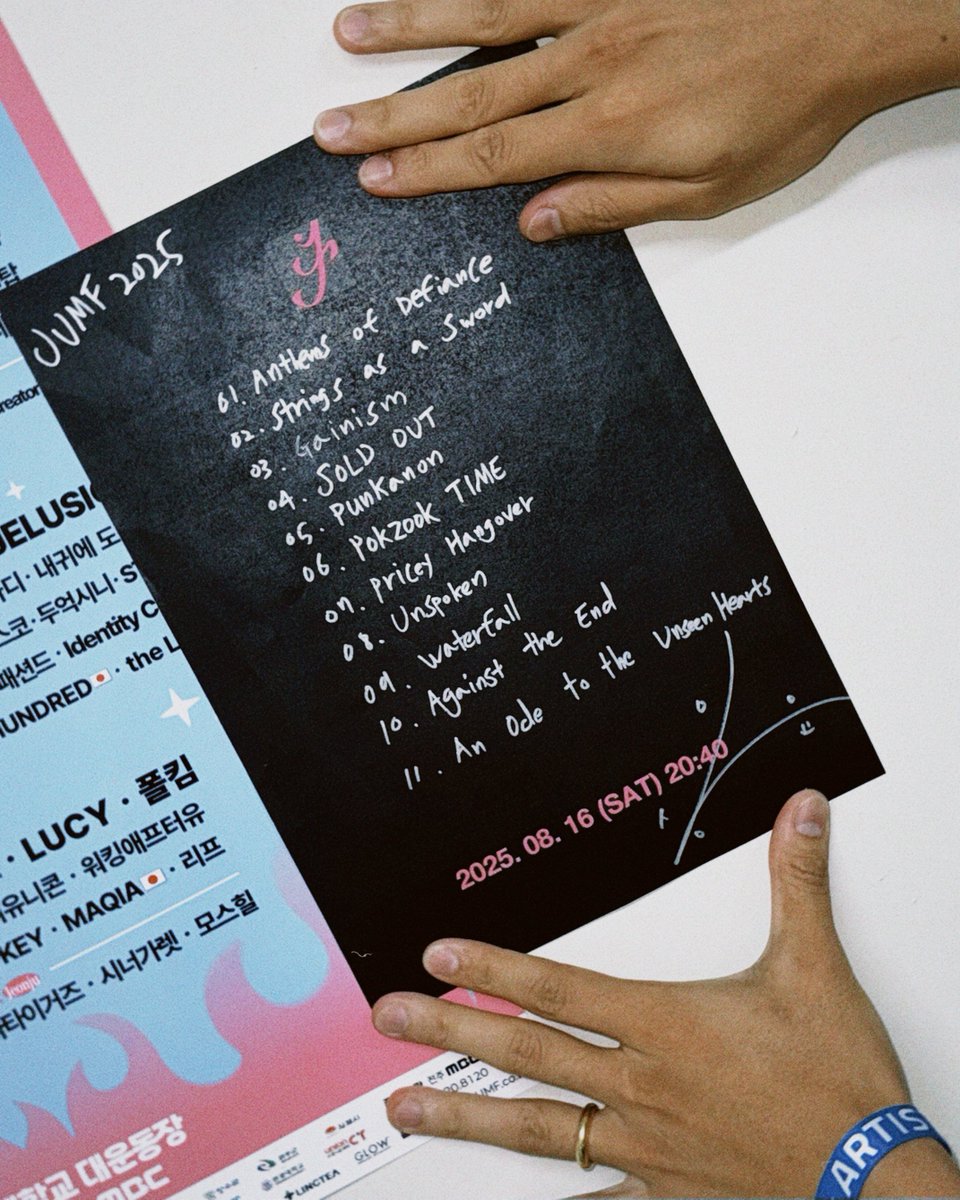 JUMF 2025
01. Anthems of Defiance
02. Strings as a Sword
03. Gainism
04. SOLD OUT
05. Punkanon
06. POKZOOK TIME
07. Pricey Hangover
08. Unspoken
09. Waterfall
10. Against the End
11. An Ode to the Unseen Hearts
2025. 08. 16 (SAT) 20:40
탑
reator
DELUSIO
디 · 내귀에 도
스코 · 두억시니 · S
패션드 · Identity C
HUNDRED · the L
· LUCY · 폴킴
유니콘 · 워킹애프터유
KEY · MAQIA · 리프
Jeonju
타이거즈 · 시너가렛 · 모스힐
학교 대운동장
MBC
전주 MBC
20.8120
UMF.co
GLOW
LINCTEA
ARTIS